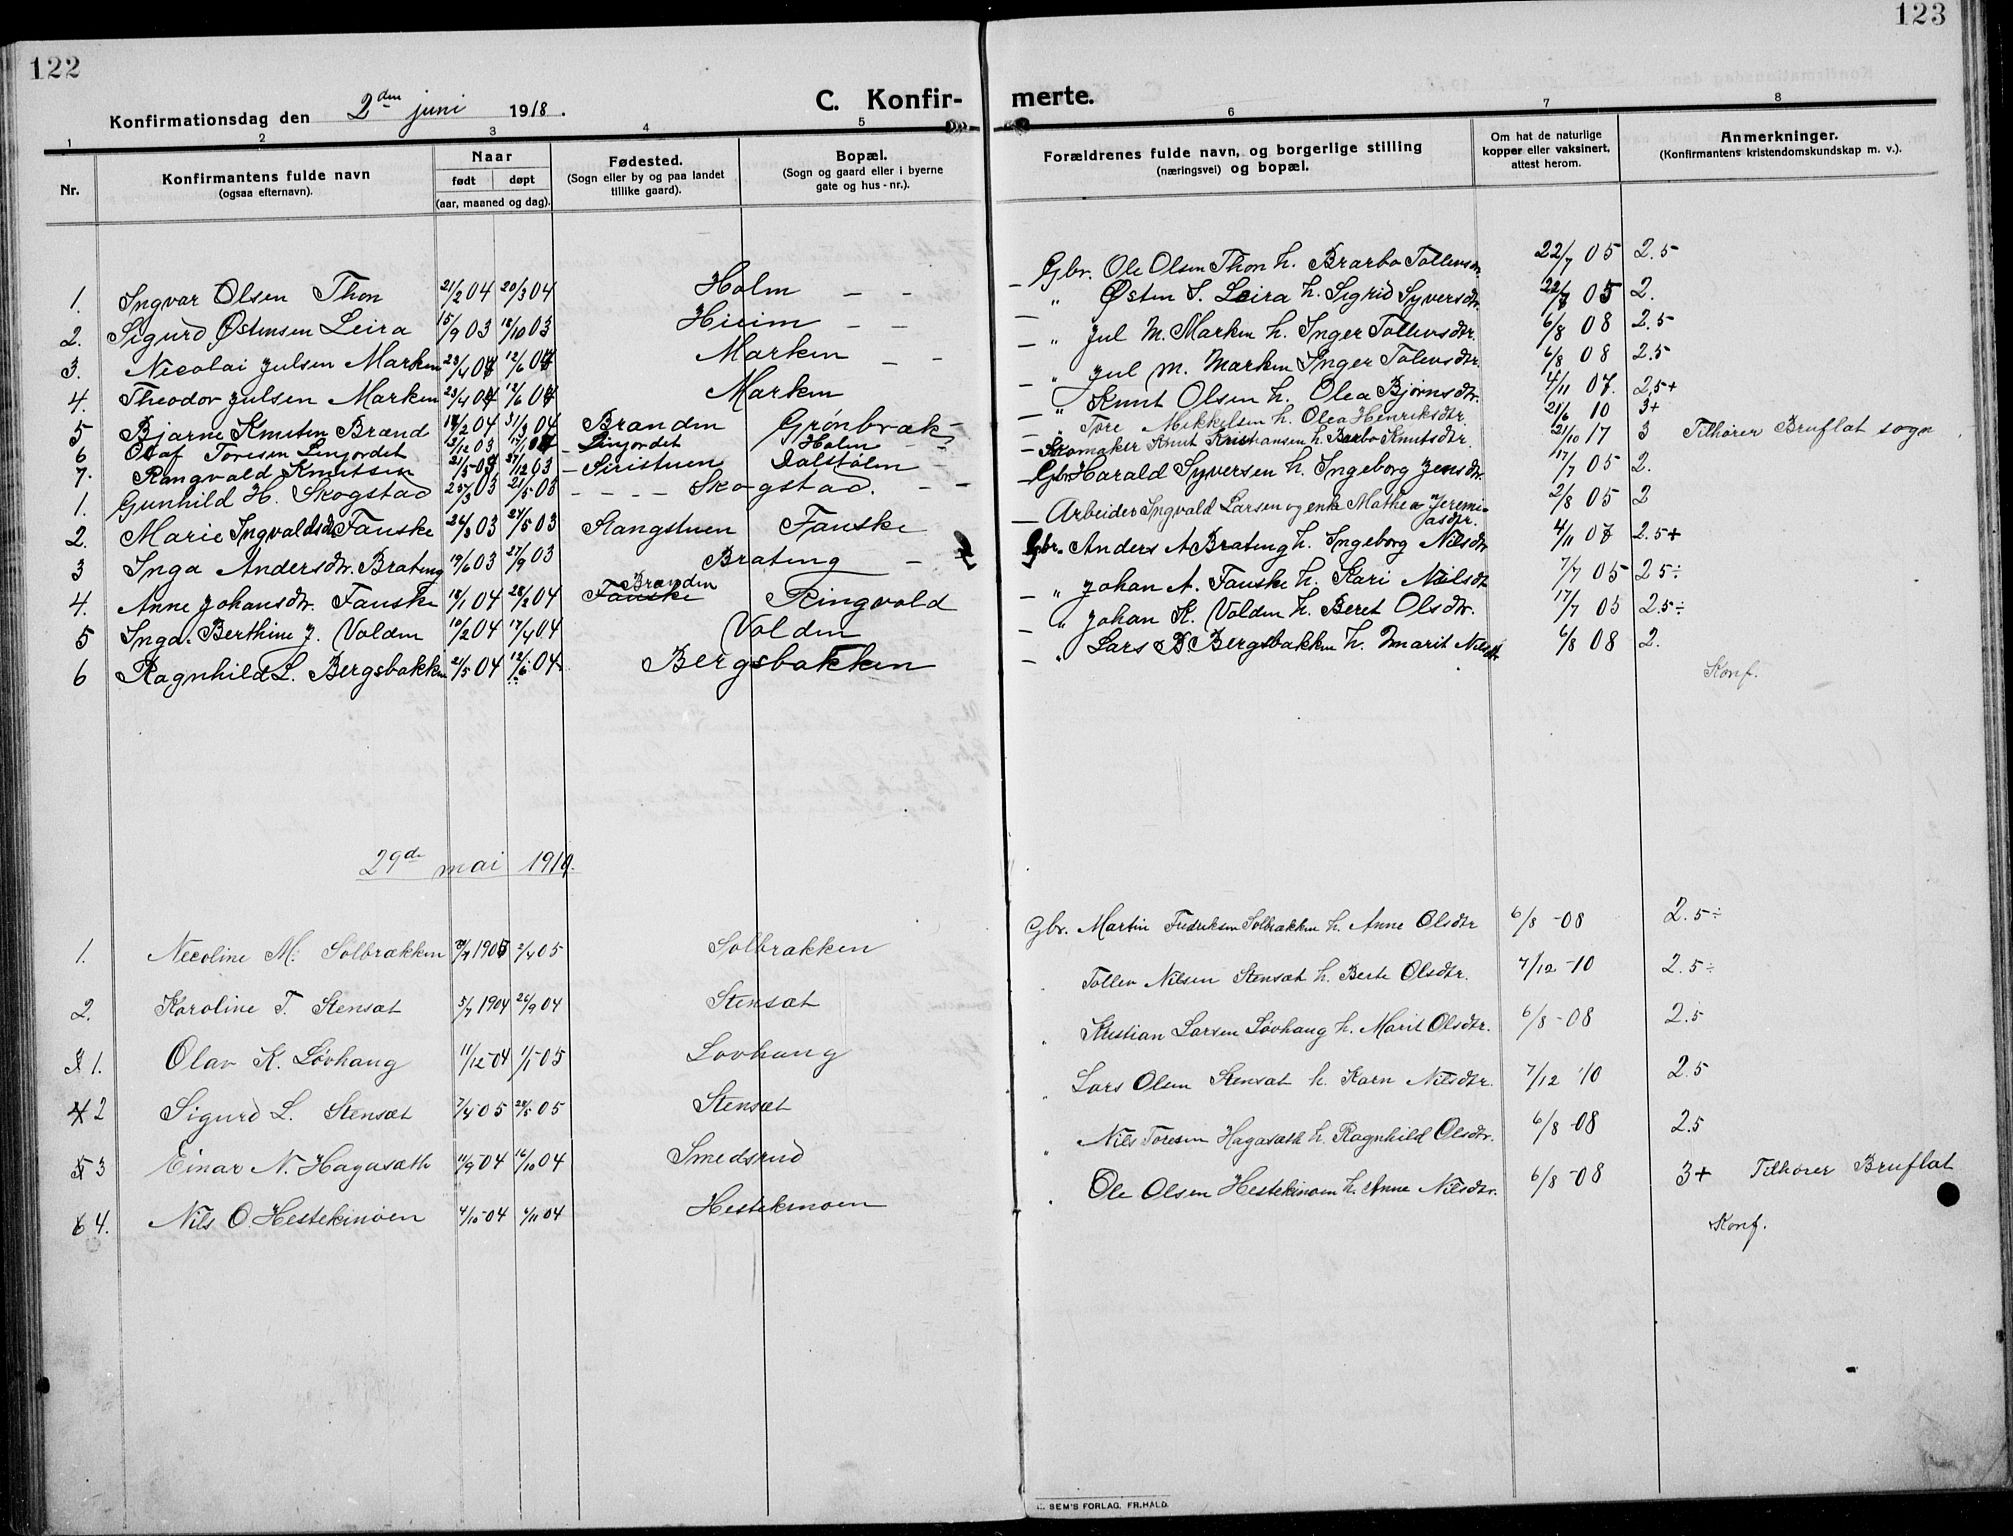 122
123
Konfirmationsdag den 2den juni 1918.
C. Konfir-
merte.
1 2 3 4 5 6 7 8
Nr.
Konfirmantens fulde navn
(ogsaa efternavn).
Naar
født døpt
(aar, maaned og dag).
Fødested.
(Sogn eller by og paa landet
tillike gaard).
Bopæl.
(Sogn og gaard eller i byerne
gate og hus-nr.).
Forældrenes fulde navn, og borgerlige stilling
(næringsvei) og bopæl.
Om hat de naturlige
kopper eller vaksinert,
attest herom.
Anmerkninger.
(Konfirmantens kristendomskundskap m. v.).
1. Ingvar Olsen Thon 21/2 04 20/3 04 Holm — - Gbr. Ole Olsen Thon h. Brarbo Tollevsdr. 22/7 05 2.5
2. Sigurd Østensen Leira 15/9 03 18/10 03 Hieim — - — " Østen S. Leira h. Sigrid Syversdtr. 22/7 05 2.
3. Nicolai Julsen Marken 23/4 04 12/6 04 Marken — - — " Jul M. Marken h. Inger Tollevsdtr. 6/8 08 2.5
4. Theodor Julsen Marken 23/4 04 12/6 04 Marken — " Jul M. Marken Inger Tolevsdtr. 6/8 08 2.5
5 Bjarne Knutsen Brænd 14/2 04 31/3 04 Branden Grönbræk — " Knut Olsen h. Olea Bjørnsdtr. 4/11 07. 2,5+
6 Olaf Toresen Linjordet 12/12 03 17/1 04 - Linjordet Holm — " Tore Mikkelsen h. Olea Henriksdtr. 21/6 10 3+
7. Rangvald Knutsen 21/5 03 27/12 03 - Siristuen Dalstølen — Skomaker Knut Kristiansen h. Barbo Knutsdtr. 21/10 17 3 Tilhører Bruflat sogn
1. Gunhild H. Skogstad 25/3 03 21/5 03 - - - - Skogstad. - - — Gbr Harald Syversen h. Ingeborg Jensdtr. 17/7 05 2.
2. Marie Ingvaldsdtr Fauske 26/3 03 24/5 03 Stangstuen Fauske — Arbeider Ingvald Larsen og enke Mathea Jeremi-
asdtr. 2/8 05 2
3 Inga Andersdtr. Brateng 19/6 03 27/9 03 Brateng — Gbr. Anders A Brateng h. Ingeborg Nilsdtr 4/11 07 2.5+
4. Anne Johansdtr. Fauske 18/1 04 28/2 04 Fauske Branden Ringvold — " Johan A. Fauske h. Kari Nilsdt 7/7 05 2 5÷
5 Inga Berthine J. Volden 10/2 04 17/4 04 Volden — " Johan K. Volden h. Beret Olsdtr. 17/7 05 2.5÷
6 Ragnhild L. Bergsbakken 21/5 04 12/6 04 Bergsbakken — " Lars B Bergsbakken h. Marit Nilsdtr 6/8 08 2.
Konf.
29de mai 1919.
1. Nicoline M. Solbrækken 1905 2/4 05 Solbrækken Gbr. Martin Fredriksen Solbrækken h. Anne Olsdtr 6/8 -08 2.5÷
2. Karoline T. Stensæt 5/7 1904 26/9 04 Stensæt Tollev Nilsen Stensæt h. Berte Olsdtr. 7/12 -10 2.5÷
3 1. Olav K. Løvhaug 11/12-04 1/1-05 Lovhaug " Kristian Larsen Løvhaug h. Marit Olsdtr. 6/8 -08 2.5
4 2 Sigurd L. Stensæt 7/4-05 28/5 05 Stensæt " Lars Olsen Stensæt h. Karn Nilsdtr. 7/12 '10 2.5
5 3 Einar N. Hagasæth 11/9-04 16/10 04 Smedsrud " Nils Toresen Hagasæth h. Ragnhild Olsdtr. 6/8 -08 2.5
6 4. Nils O Hestekinöen 4/10-04 04 Hestekinoen " Ole Olsen Hestekinoen h. Anne Nilsdtr. 6/8 -08 3+ Tilhører Bruflat
Konf.
SEM'S FORLAG, FR.HALD.